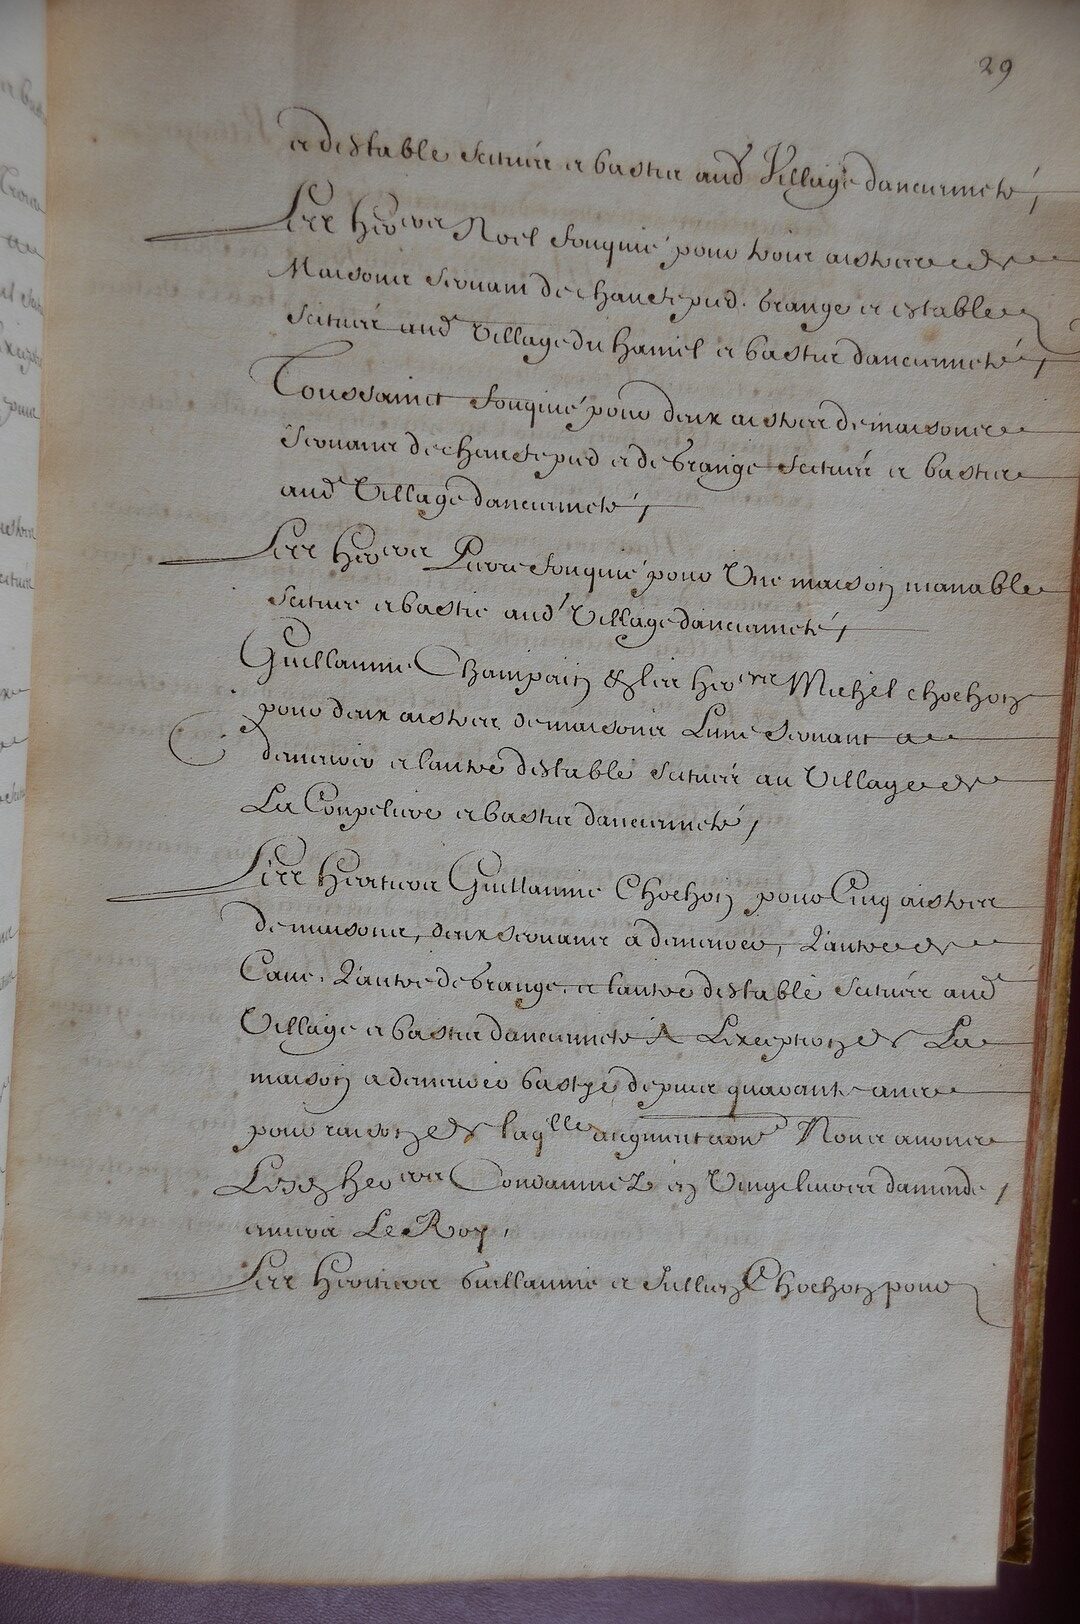 29
et destable scituéz et bastis aud Village danciennete,
Les Her^iers Noel fouquié pour trois aistres de
Maisons servant de chauffepied. Grange et estable
Scituéz aud Village du Hamel et bastis danciennete,
Toussainct fouquié pour deux aistres de maisons
Servans de chauffepied et de Grange scituéz et bastis
aud Village danciennete,
Les Her^iers Pierre fouquié pour Une maison manable
Scituee et bastie aud Village danciennete,
Guillaume Champain & les Her^iers Michel Chochon
pour deux aistres de maisons Lune Servant a
demeurer et lautre destable Scituéz au Village de
La Coupeliere et bastis danciennete,
Les Heritiers Guillaume Chochon pour Cinq aistres
de maisons, deux servans a demeurer, L'autre de
Cave, L'autre de Grange, et lautre destable Scituéz aud
Village et bastis danciennete A Lexception de La
maison a demeurer bastye depuis quarante annees
pour raison de laq^lle augmentaon Nous avons
Lesd Her^iers Condamnez en Vingt livres damende,
envers Le Roy,
Les Heritiers Guillaume et Jullien Chochon pour